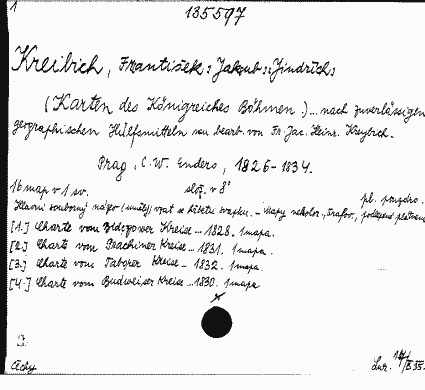 1
135597
Kreibich, František Jakub Jindřich
(Karten des Königreiches Böhmen.)... nach zuverlässigen
geographischen Hülfsmitteln neu bearb. von Fr. Jac. Heinr. Kreybich.
Prag, C. W. Enders, 1826-1834.
16 map v 1 sv. slož. v 8° pl. pouzdro.
Hlavní souborný název (umělý) vzat se hřbetu svazku. - Mapy nekolor.,
[1.] Charte vom Bidczower Kreise... 1828. 1 mapa.
[2.] Charte vom Prachiner Kreise... 1831. 1 mapa.
[3.] Charte vom Taborer Kreise... 1832. 1 mapa.
[4.] Charte vom Budweiser Kreise... 1830. 1 mapa
Čechy